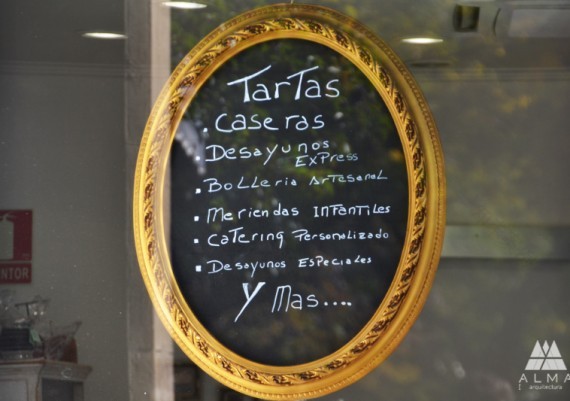 Tartas
. caseras
. Desayunos
Express
. Bolleria Artesanal
. Meriendas Infantiles
. Catering Personalizado
. Desayunos Especiales
Y Mas....
NTOR
ALMA
arquitectura